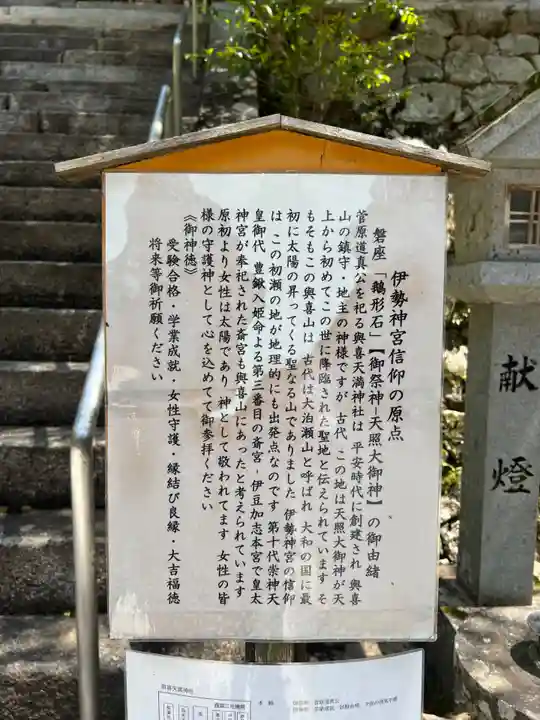 伊勢神宮信仰の原点
磐座 「鵝形石」【御祭神−天照大御神】の御由緒
菅原道真公を祀る與喜天満神社は 平安時代に創建され 與喜
山の鎮守・地主の神様ですが 古代 この地は天照大御神が天
上から初めてこの世に降臨された聖地と伝えられています そ
もそもこの與喜山は 古代は大泊瀬山と呼ばれ 大和の国に最
初に太陽の昇ってくる聖なる山でありました 伊勢神宮の信仰
は この初瀬の地が地理的にも出発点なのです 第十代崇神天
皇御代 豊鍬入姫命よる第三番目の斎宮−伊豆加志本宮で皇太
神宮が奉祀された斎宮も與喜山にあったと考えられています
原初より女性は太陽であり 神として敬われてます 女性の皆
様の守護神として心を込めてて御参拝ください
《御神徳》
受験合格・学業成就・女性守護・縁結び良縁・大吉福徳
将来等御祈願ください
献燈